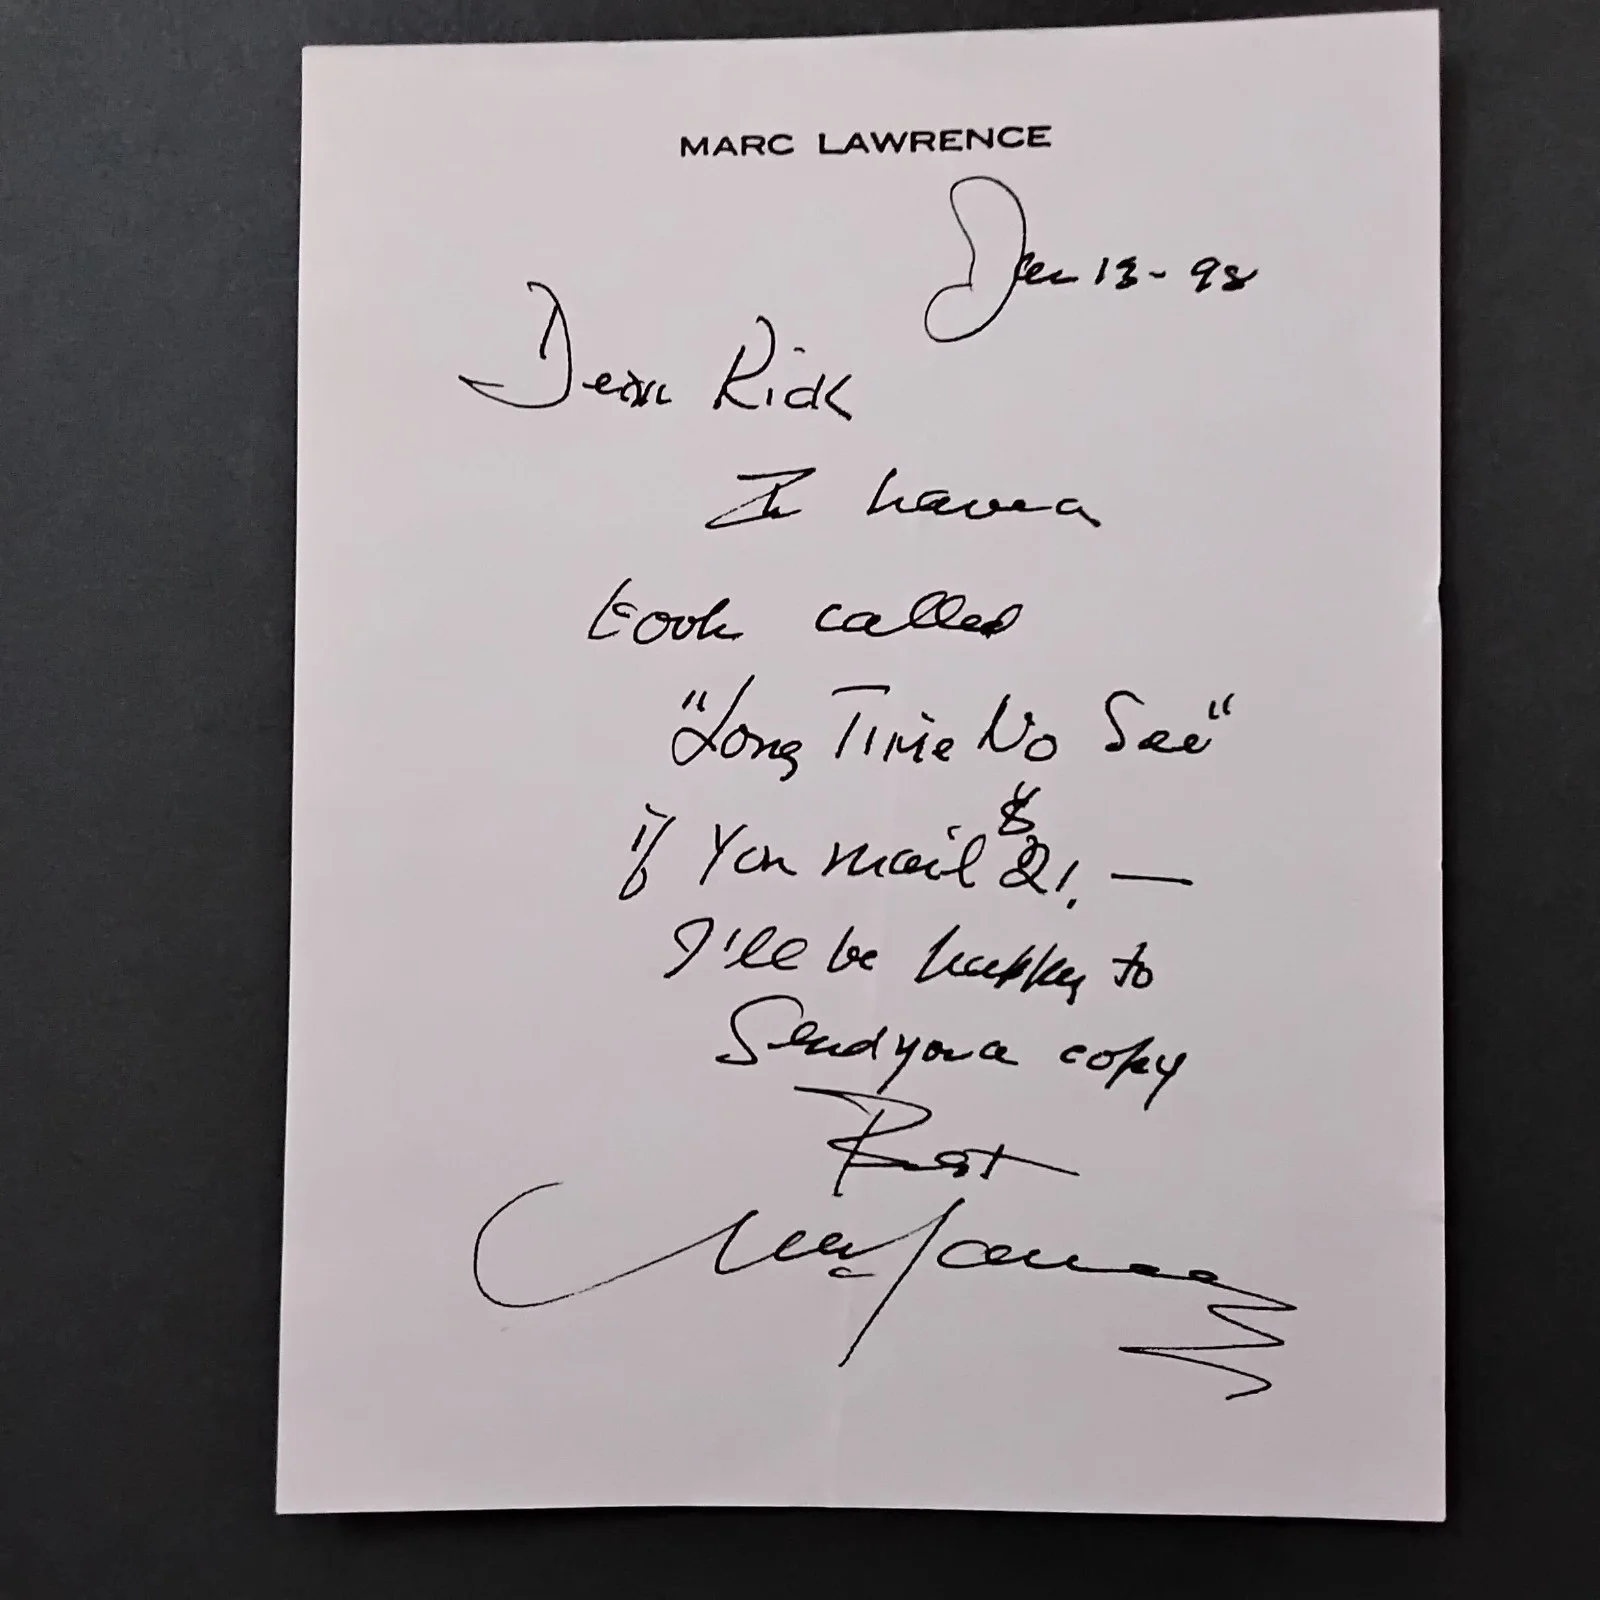 MARC LAWRENCE
Dec 13 - 98
Dear Rick
I have a
book called
"Long Time No See"
if you mail $21. —
I'll be happy to
Send you a copy
Best
Marc Lawrence